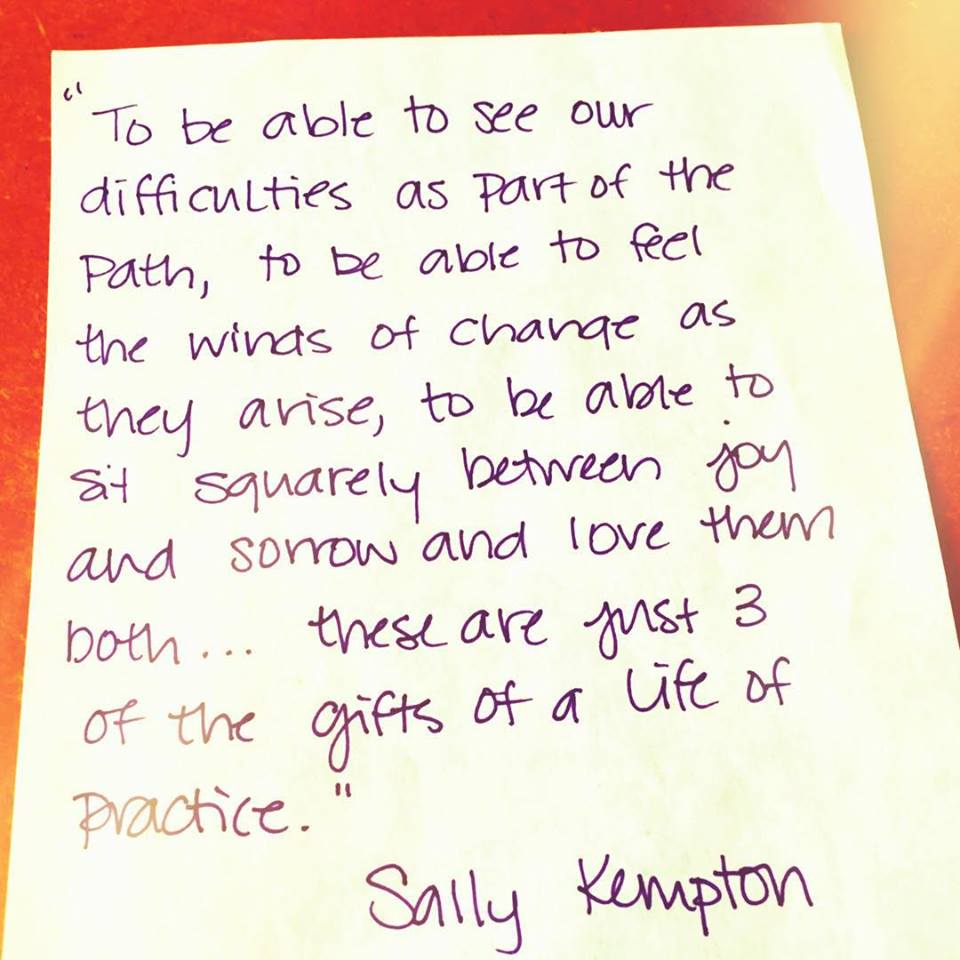 "To be able to see our
difficulties as part of the
path, to be able to feel
the winds of change as
they arise, to be able to
sit squarely between joy
and sorrow and love them
both... these are just 3
of the gifts of a life of
practice."
Sally Kempton